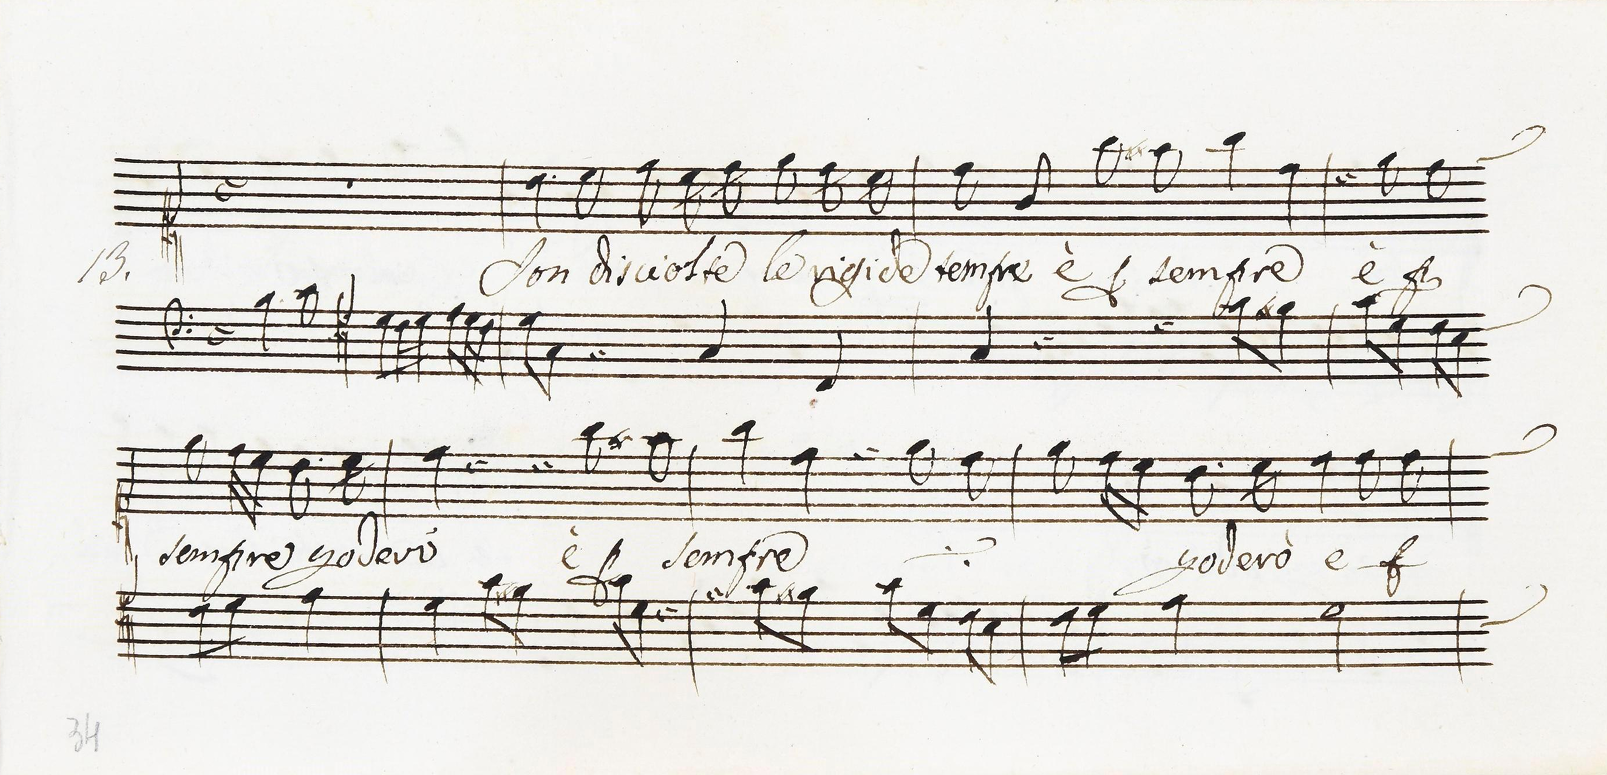 13.
Son disciolte le rigide tempre è p sempre è p
sempre goderò è p sempre goderò e p
34